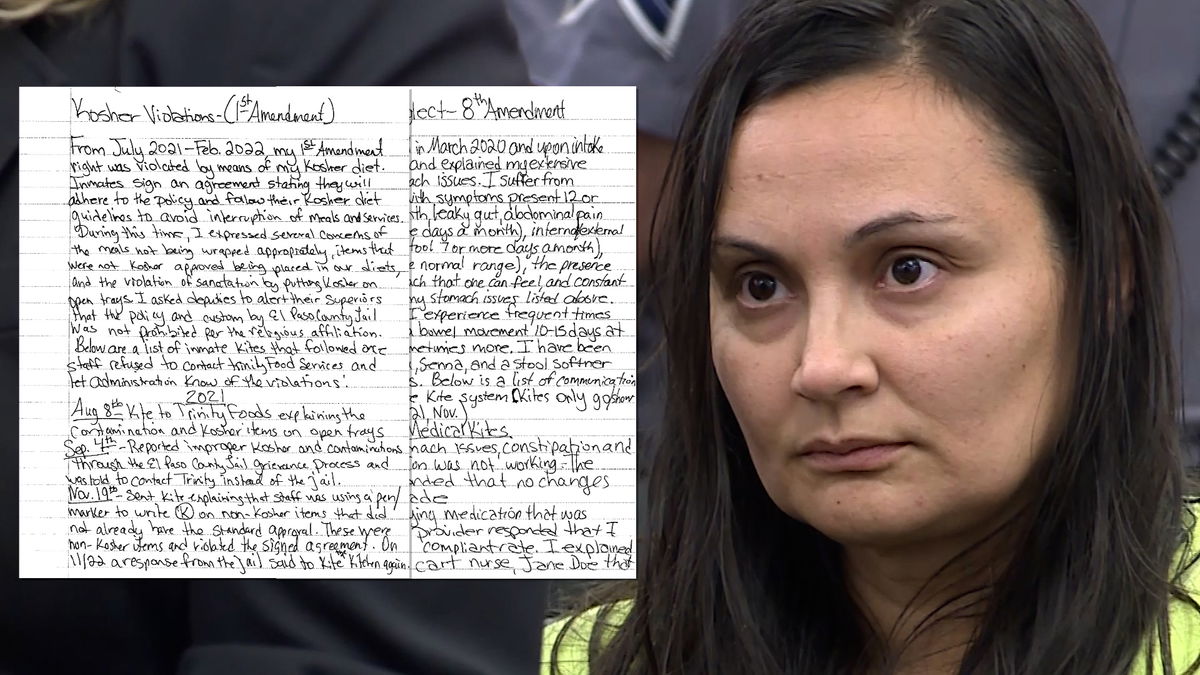 Kosher Violations - (1st Amendment)
From July 2021 - Feb. 2022, my 1st Amendment
right was violated by means of my Kosher diet.
Inmates sign an agreement stating they will
adhere to the policy and follow their Kosher diet
guidelines to avoid interruption of meals and services.
During this time, I expressed several concerns of
the meals not being wrapped appropriately, items that
were not Kosher approved being placed in our diets,
and the violation of sanatation by putting Kosher on
open trays. I asked deputies to alert their superiors
that the policy and custom by El Paso County Jail
was not prohibited per the religious affiliation.
Below are a list of inmate kites that followed once
staff refused to contact Trinity Food Services and
let administration know of the violations:
2021
Aug 8th - Kite to Trinity Foods explaining the
contamination and Kosher items on open trays
Sep. 4th - Reported improper Kosher and contaminations
through the El Paso County Jail grievance process and
was told to contact Trinity instead of the jail.
Nov. 19th - Sent Kite explaining that staff was using a pen/
marker to write (K) on non-Kosher items that did
not already have the standard approval. These were
non-Kosher items and violated the signed agreement. On
11/22 a response from the jail said to Kite Kitchen again.
lect - 8th Amendment
in March 2020 and upon intake
and explained my extensive
ach issues. I suffer from
with symptoms present 12 or
th leaky gut, abdominal pain
e days a month), internal/external
tool 7 or more days a month),
e normal range), the presence
ch that one can feel, and constant
my stomach issues listed above.
I experience frequent times
a bowel movement 10-15 days at
metimes more. I have been
, Senna, and a stool softner
s. Below is a list of communication
e Kite system (Kites only go/show
21, Nov.)
Medical Kites.
mach issues, constipation and
on was not working. The
nded that no changes
ade
ying medication that was
provider responded that I
compliant rate. I explained
cart nurse, Jane Doe that